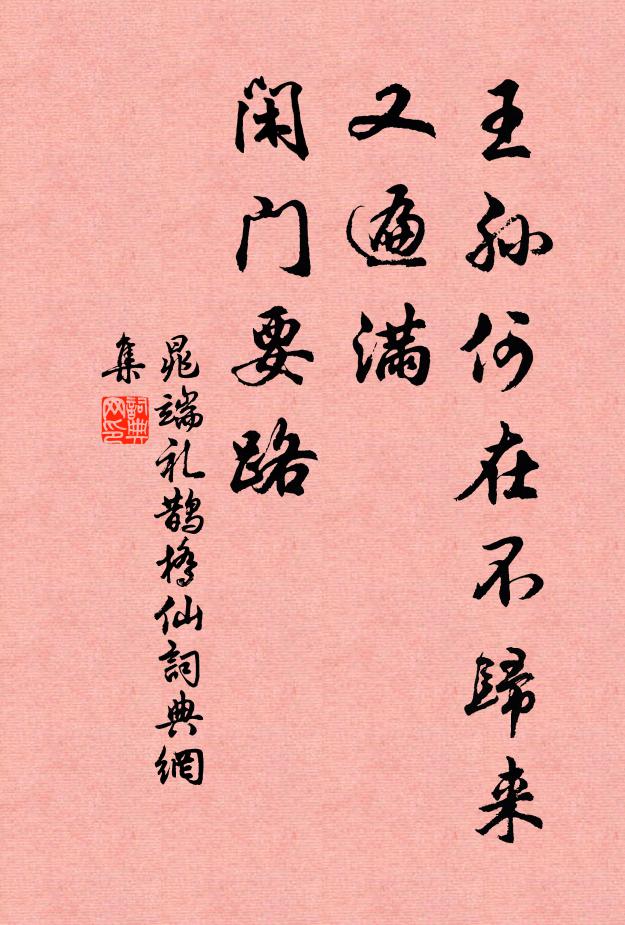 王孙何在不歸来
又遍满
闲门要路
晁端礼鹊桥仙詞典網
集
詞典网印